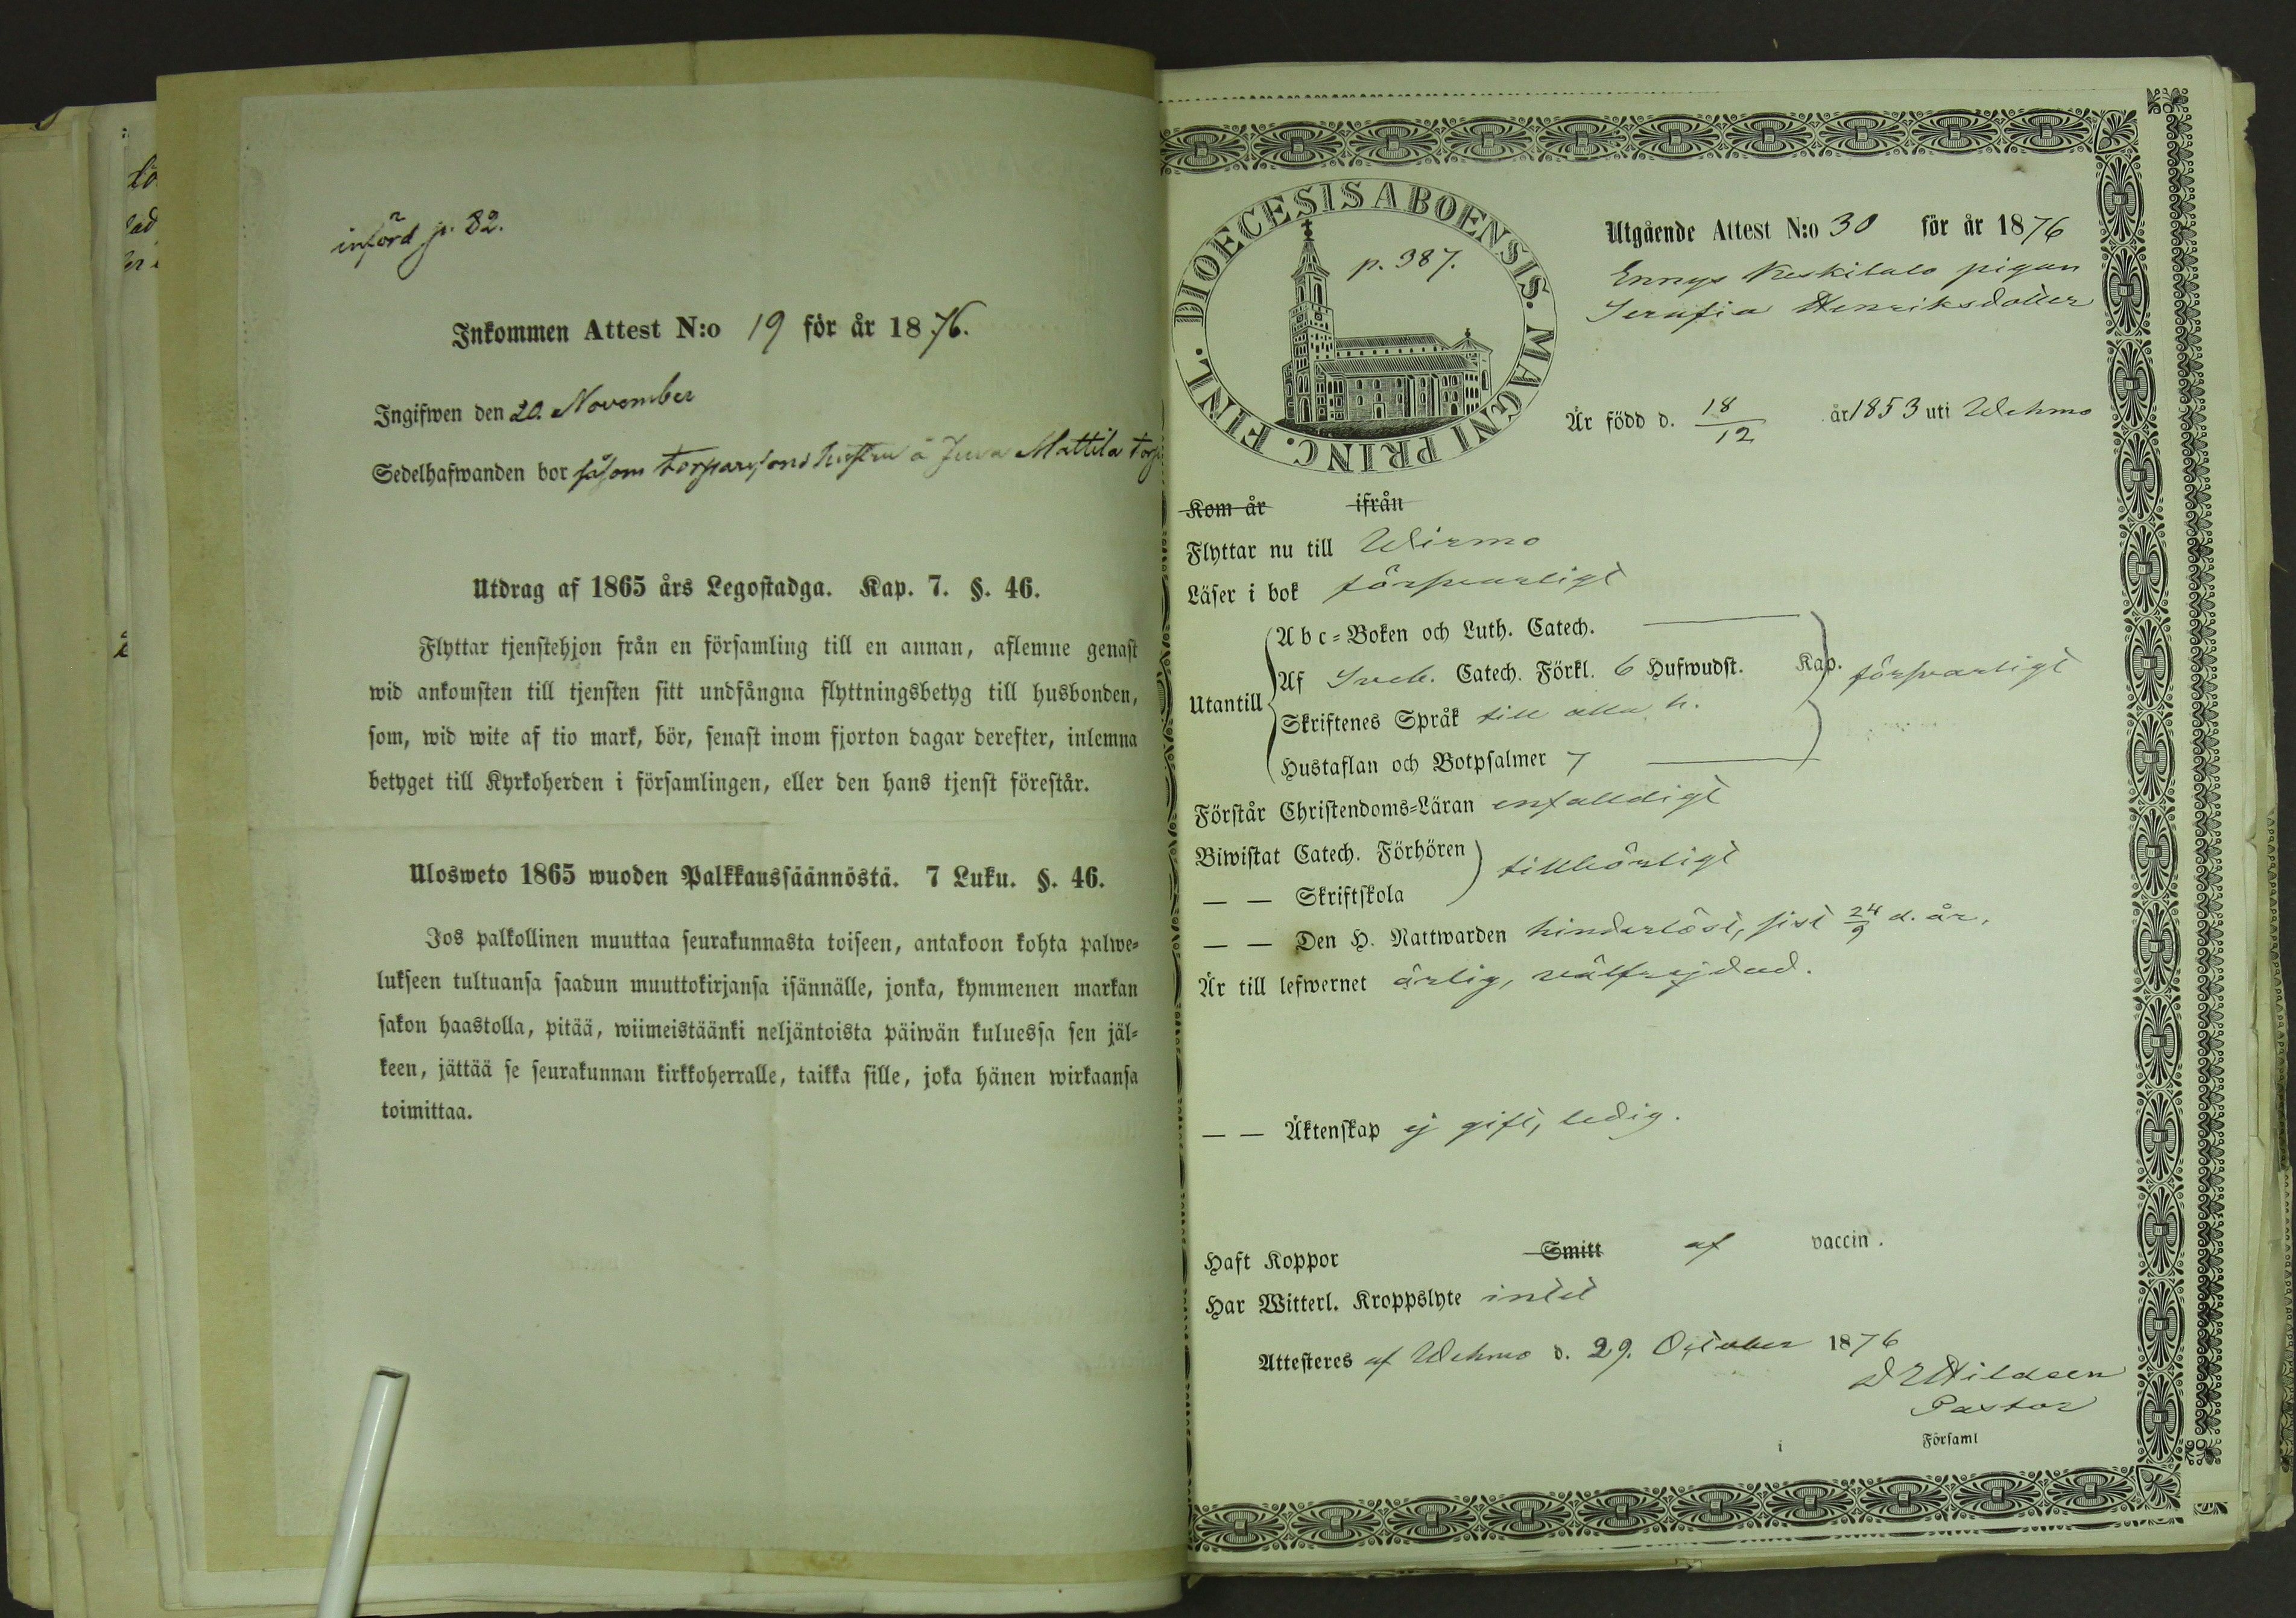 införd p. 82.
Inkommen Attest N:o 19 för år 1876.
Ingifwen den 20. November
Sedelhafwanden bor såsom torparesons hustru å Juva Mattila torp
Utdrag af 1865 års Legostadga. Kap. 7. §. 46.
Flyttar tjenstehjon från en församling till en annan, aflemne genast
wid ankomsten till tjensten sitt undfångna flyttningsbetyg till husbonden,
som, wid wite af tio mark, bör, senast inom fjorton dagar derefter, inlemna
betyget till Kyrkoherden i församlingen, eller den hans tjenst förestår.
Ulosweto 1865 wuoden Palkkaussäännöstä. 7 Luku. §. 46.
Jos palkollinen muuttaa seurakunnasta toiseen, antakoon kohta palwe-
lukseen tultuansa saadun muuttokirjansa isännälle, jonka, kymmenen markan
sakon haastolla, pitää, wiimeistäänki neljäntoista päiwän kuluessa sen jäl-
keen, jättää se seurakunnan kirkkoherralle, taikka sille, joka hänen wirkaansa
toimittaa.
DIOECESIS ABOENSIS. MAGNI PRINC. FINL.
p. 387.
Utgående Attest N:o 30 för år 1876
Ennys Keskitalo pigan
Serafia Henriksdotter
Är född d. 18/12 år 1853 uti Wehmo
Kom år ifrån
Flyttar nu till Wirmo
Läser i bok försvarligt
Utantill
Abc-Boken och Luth. Catech.
Af Sveb. Catech. Förkl. 6 Hufwudst. Kap. försvarligt
Skriftenes Språk till alla h.
Hustaflan och Botpsalmer 7
Förstår Christendoms-Läran enfalldigt
Biwistat Catech. Förhören tillbörligt
— — Skriftskola
— — Den H. Nattwarden hinderlöst, sist 24/9 d. år.
Är till lefwernet ärlig, välfrejdad.
— — Äktenskap ej gift, ledig.
Haft Koppor Smitt af vaccin.
Har Witterl. Kroppslyte intet
Attesteres af Wehmo d. 29. October 1876
Pastor
i Församl